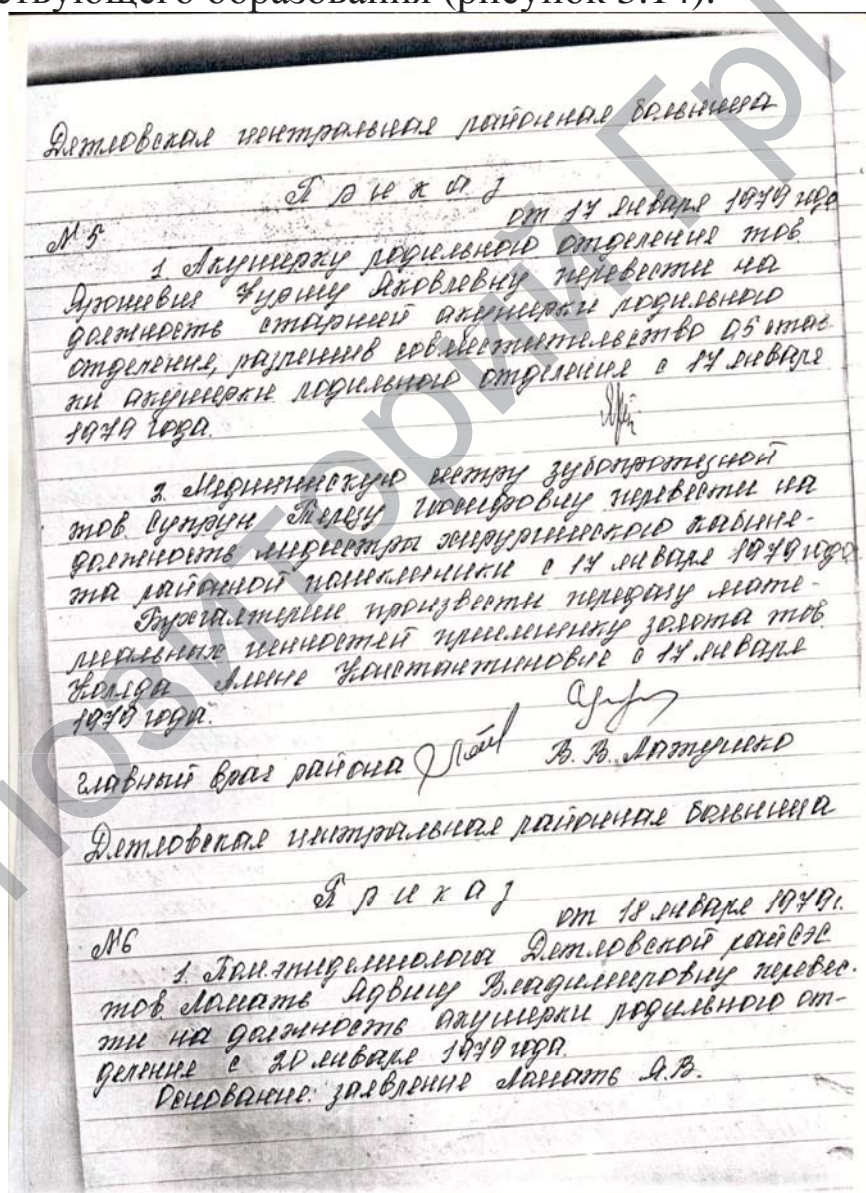 ствующего образования (рисунок 3.14).
Дятловская центральная районная больница
Приказ
№ 5 от 17 января 1979 года
1 Акушерку родильного отделения тов.
Яковлевну перевести на
должность старшей акушерки родильного
отделения, разрешив совместительство 0,5 став
ки акушерки родильного отделения с 17 января
1979 года.
2. Медицинскую сестру зубопротезной
тов. Супрун Терезу Иосифовну перевести на
должность медсестры хирургического кабине-
та районной поликлиники с 17 января 1979 года.
Бухгалтерии произвести передачу мате-
риальных ценностей приемщику золота тов
Коляда Алине Константиновне с 17 января
1979 года.
главный врач района В. В. Латушко
Дятловская центральная районная больница
Приказ
№6 от 18 января 1979г.
1. Пом. эпидемиолога Дятловской райСЭС
тов Ломать Ядвигу Владимировну перевес-
ти на должность акушерки родильного от-
деления с 20 января 1979 года.
Основание: заявление Ломать Я.В.
ПОЗИТОРИЙ ГрГ